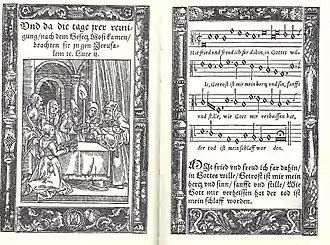 Und da die tage jrer reini-
gung/ nach dem Gesetz Mosi kamen/
brachten sie jn gen Jerusa-
lem ꝛc. Luce ij.
Mit fried und freud ich far dahin, in Gottes wil-
le, Getrost ist mir mein hertz und sin, sanfft
und stille, wie Gott mir verheissen hat,
der tod ist mein schlaff wor den.
MIt fried und freud ich far dahin/
in Gottes wille/ Getrost ist mir mein
hertz und sinn/ sanfft und stille/ Wie
Gott mir verheissen hat der tod ist
mein schlaff worden.